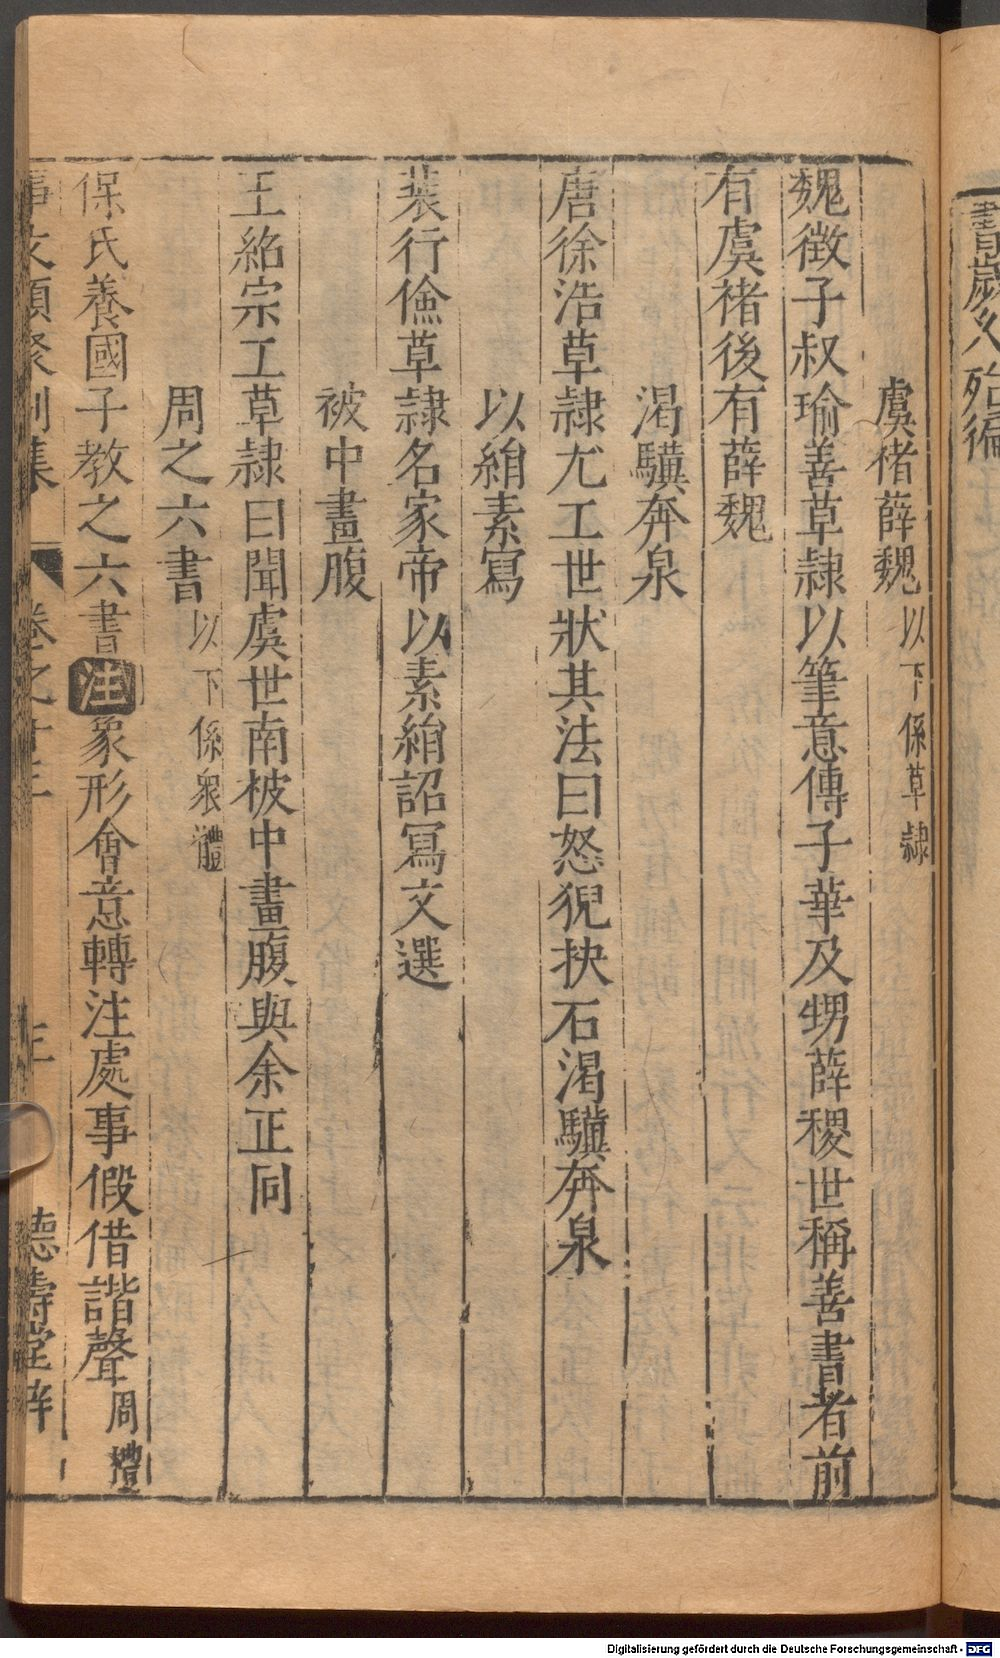 書歲久殆徧
虞褚薛魏以下係草隷
魏徵子叔瑜善草隷以筆意傳子華及甥薛稷世稱善書者前
有虞褚後有薛魏
渴驥奔泉
唐徐浩草隷尤工世狀其法曰怒猊抉石渴驥奔泉
以絹素寫
裴行儉草隷名家帝以素絹詔冩文選
被中畫腹
王紹宗工草隷曰聞虞世南被中畫腹與余正同
周之六書以下係衆體
保氏養國子教之六書注象形會意轉注處事假借諧聲周禮
事文類聚別集 卷之十三 德壽堂梓
Digitalisierung gefördert durch die Deutsche Forschungsgemeinschaft - DFG